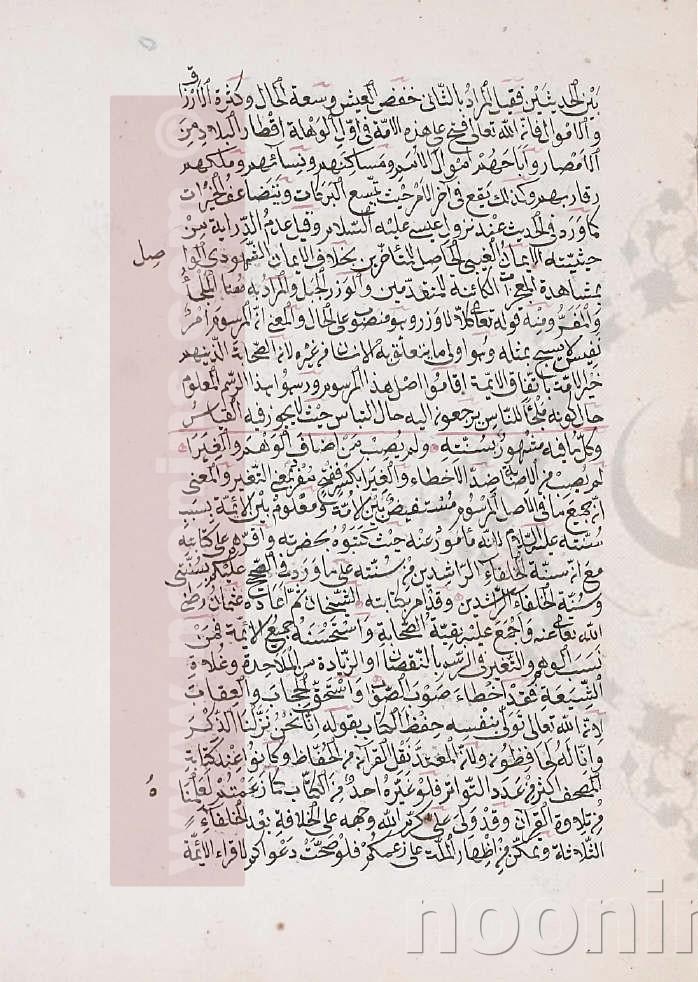 بين الحديثين فقيل المراد بالثاني خفض العيش وسعة الحال وكثرة الارزاق
والاموال فان الله تعالى فتح على هذه الامة في اول الوهلة اقطار البلاد من
الامصار واباحهم اموال الاسر ومساكنهم ونسائهم وملكهم
رقابهم وكذلك يقع في آخر الامر حيث تتسع البركات ويتضاعف الخيرات
كما ورد في الحديث عند نزول عيسى عليه السلام وقيل عدم الدراية من
حيثية الايمان الغيبي الحاصل للمتأخرين بخلاف الايمان الشهودي الحاصل
بمشاهدة المعجزات الكائنة للمتقدمين والوزر الجبل والمراد به هنا الملجأ
والمفر ومنه قوله تعالى كلا لا وزر وهو منصوب على الحال والمعنى ان المرسوم امر
نفيس لا يسمح بمثله وهو اولى ما يتعلق به الانسان من غيره لان الصحابة الذين هم
خير الامة باتفاق الائمة اقاموا اصل هذا المرسوم ورسموا بذا الرسم المعلوم
حال كونه ملجأ للناس يرجعون اليه حال التباس حيث لا يجوز فيه القياس
وكل ما فيه مشهور بسنته ولم يصب من اضاف الوهم والغيرا
لم يصب من الاصابة ضد الاخطاء والغير بكسر ففتح مفرد بمعنى التغير والمعنى
ان جميع ما في الاصل المرسوم مستفيض بين الامة ومعلوم بين الائمة بسبب
سنته عليه السلام لانه مأمور عنه حيث كتبوه بحضرته واقره على كتابته
مع ان سنة الخلفاء الراشدين من سنته على ما ورد في الصحيح عليكم بسنتي
وسنة الخلفاء الراشدين وقد امر بكتابته الشيخان ثم اعاده عثمان رضي
الله تعالى عنه واجمع عليه بقية الصحابة واستحسنه جميع الائمة فمن
نسب الوهم والتغير في الرسم بالنقصان او الزيادة من الملاحدة وغلاة
الشيعة فقد اخطاء صوب الصواب واستحق الحجاب والعقاب
لان الله تعالى تولى بنفسه حفظ الكتاب بقوله انا نحن نزلنا الذكر
وانا له لحافظون ولان المعتمد نقل القرآن من الحفاظ وكانوا عند كتابة
المصحف اكثر من عدد التواتر فلو غيره احد من الكتاب كما زعمتم لعلمنا
من تلاوة القرآن وقد ولى علي كرم الله وجهه على الخلافة بعد الخلفاء
الثلاثة وتمكن من اظهار الملة على زعمكم فلو صحت دعواكم لاقراء الائمة
www.noonin.com ©
noonin